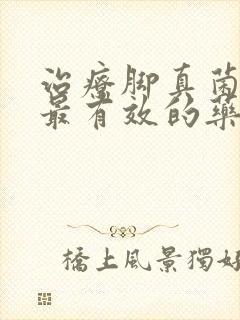 治療脚真菌
最有效的藥
橋上風景獨好